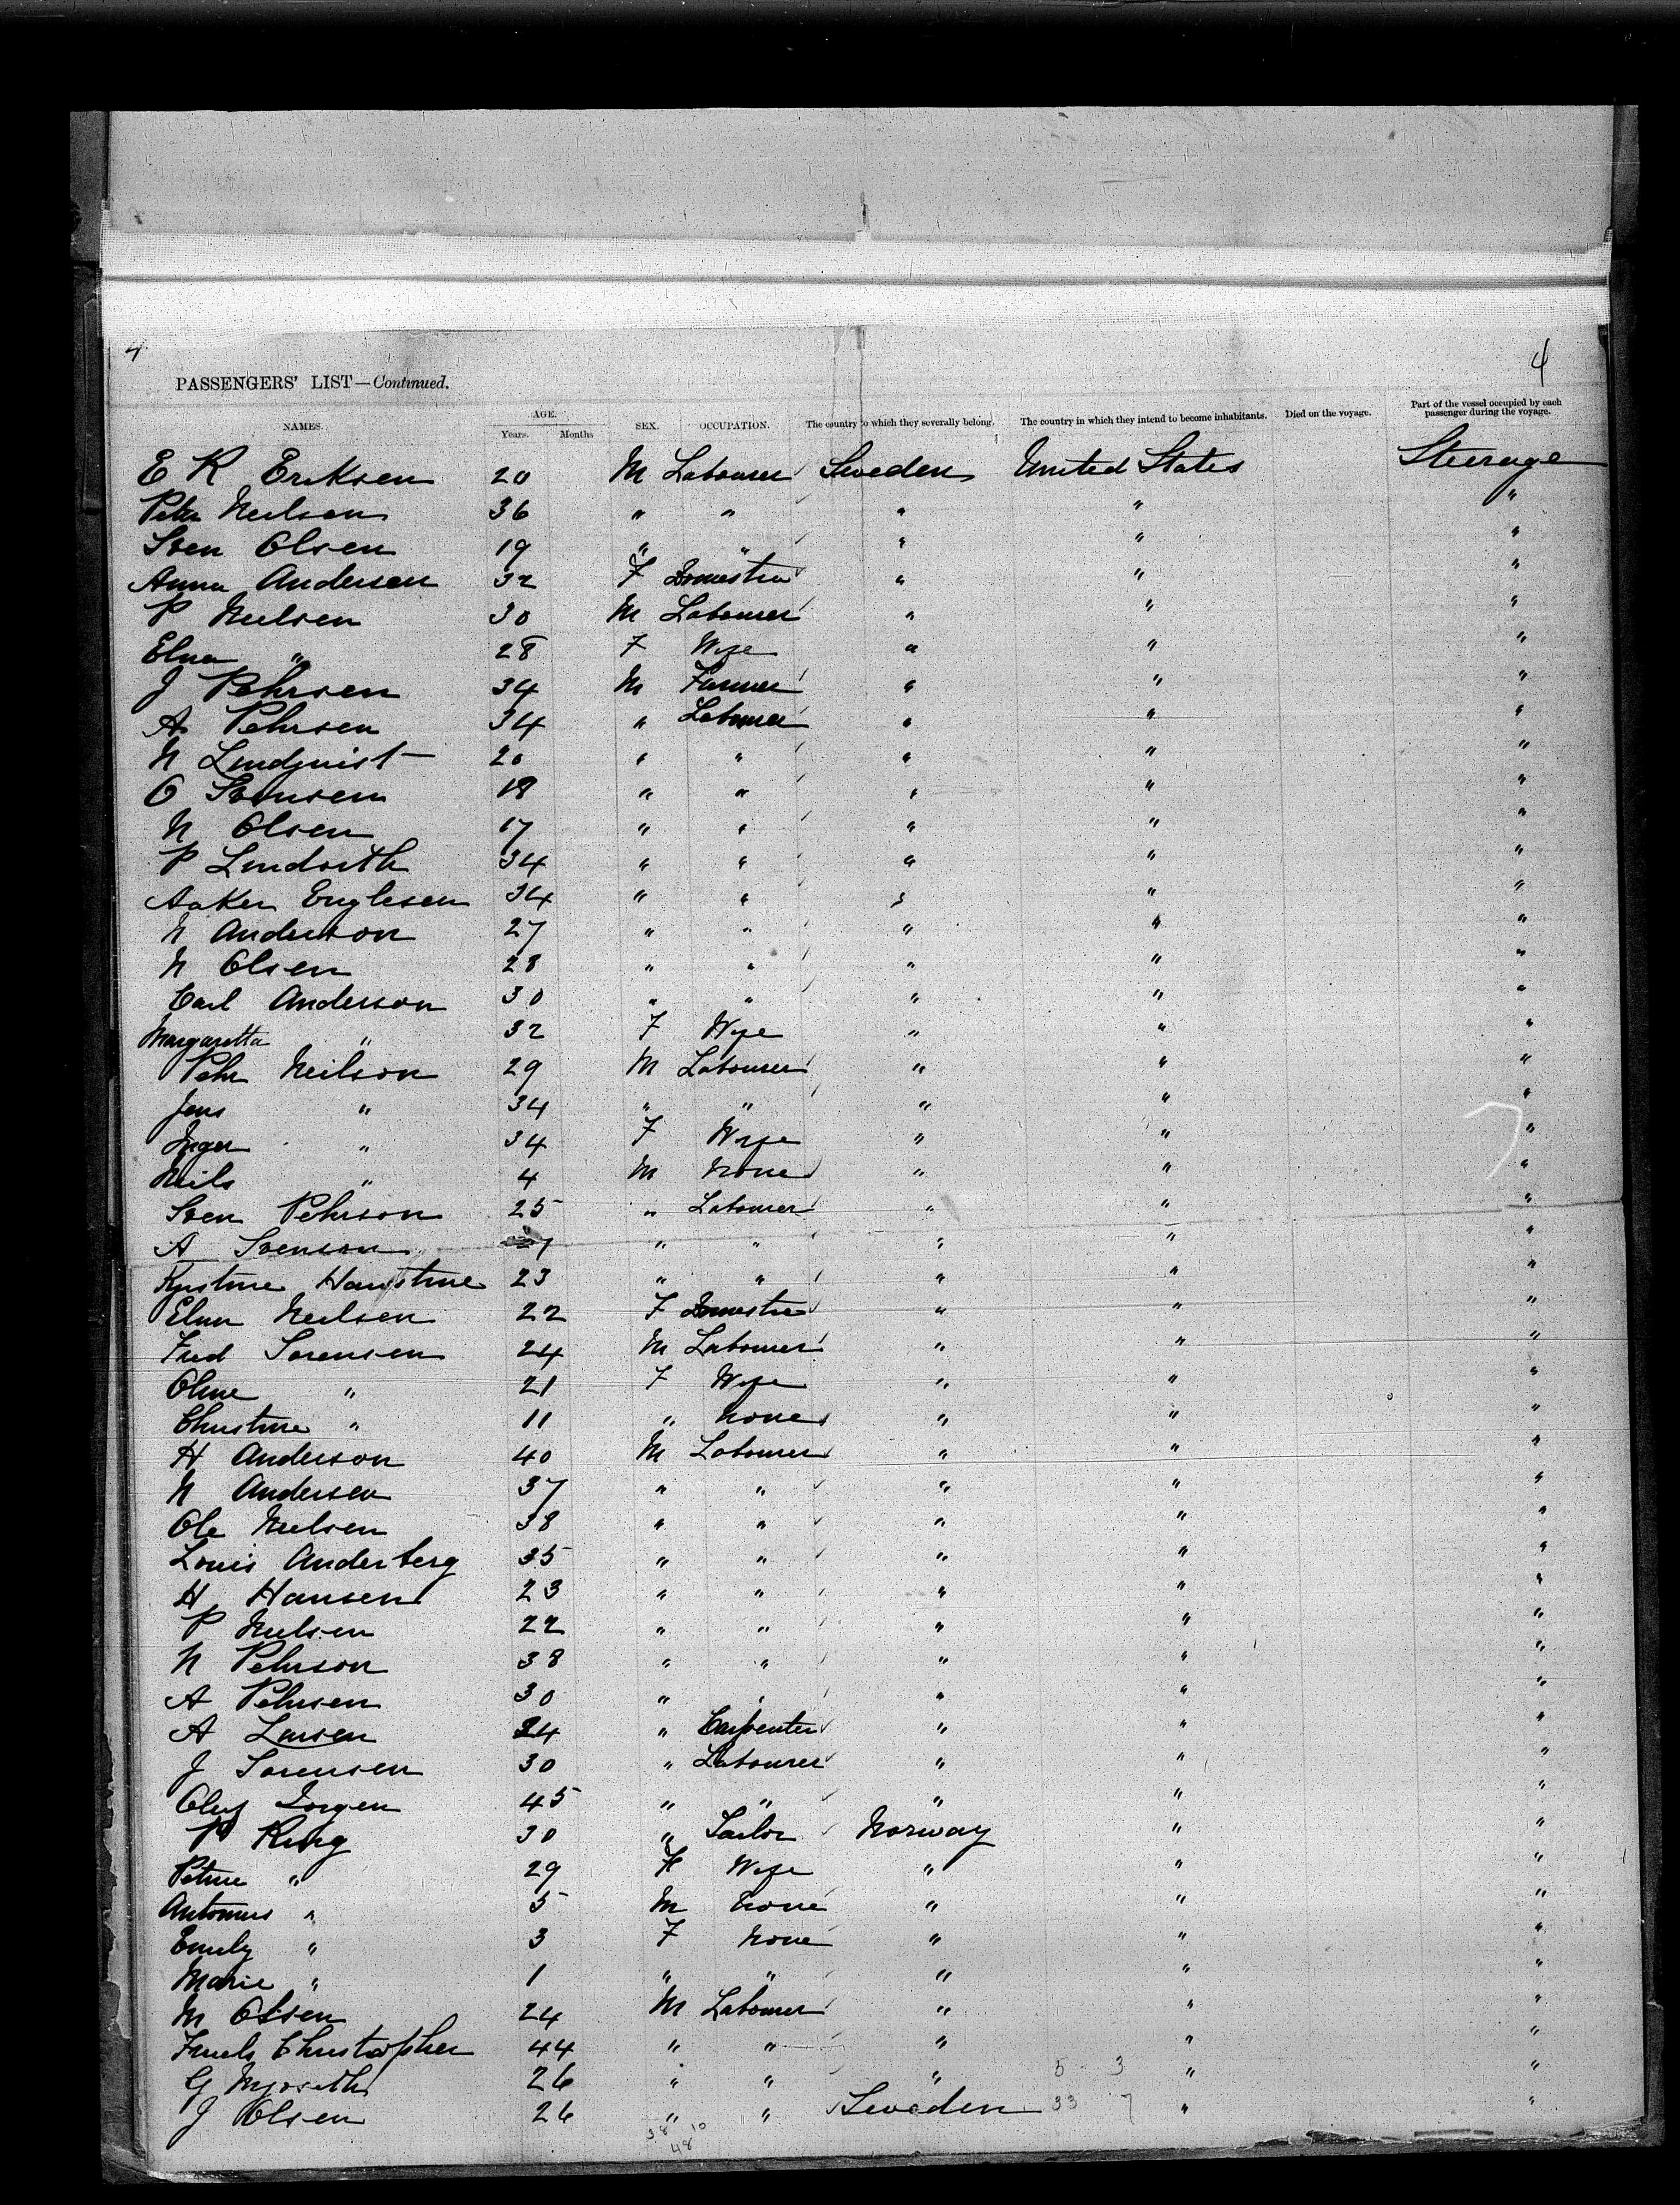 4 4
PASSENGERS' LIST—Continued.
NAMES. AGE. Years. Months SEX. OCCUPATION. The country to which they severally belong. The country in which they intend to become inhabitants. Died on the voyage. Part of the vessel occupied by each passenger during the voyage.
E R Eriksen 20 M Labourer Sweden United States Steerage
Pehr Neilson 36 " " " " "
Sven Olsen 19 " " " " "
Anna Andersen 32 F Domestic " " "
P Neilsen 30 M Labourer " " "
Elna " 28 F Wife " " "
J Pehrsen 34 M Farmer " " "
A Pehrsen 34 " Labourer " " "
N Lindquist 20 " " " " "
O Svensen 18 " " " " "
N Olsen 17 " " " " "
P Lindvith 34 " " " " "
Aaker Englesen 34 " " " " "
N Anderson 27 " " " " "
N Olsen 28 " " " " "
Carl Anderson 30 " " " " "
Margaretta " 32 F Wife " " "
Pehr Neilson 29 M Labourer " " "
Jens " 34 " " " " "
Inger " 34 F Wife " " "
Neils " 4 M None " " "
Sven Pehrson 25 " Labourer " " "
A Svenson " " " " "
Kjistine Hanstine 23 " " " " "
Elna Neilsen 22 F Domestic " " "
Fred Sorensen 24 M Labourer " " "
Oline " 21 F Wife " " "
Christine " 11 " None " " "
H Anderson 40 M Labourer " " "
N Andersen 37 " " " " "
Ole Neilsen 38 " " " " "
Louis Anderberg 35 " " " " "
H Hansen 23 " " " " "
P Neilsen 22 " " " " "
N Pehrson 38 " " " " "
A Pehrsen 30 " " " " "
A Larsen 24 " Carpenter " " "
J Sorensen 30 " Labourer " " "
Oluf Jorgen 45 " " " " "
P Ring 30 " Tailor Norway " "
Petrine " 29 F Wife " " "
Antonius " 5 M None " " "
Emily " 3 F None " " "
Marie " 1 " " " " "
M Olsen 24 M Labourer " " "
Christopher 44 " " " " "
G Myrseth 26 " " " 5 3 " "
J Olsen 26 " " Sweden 33 7 " "
38 10
48